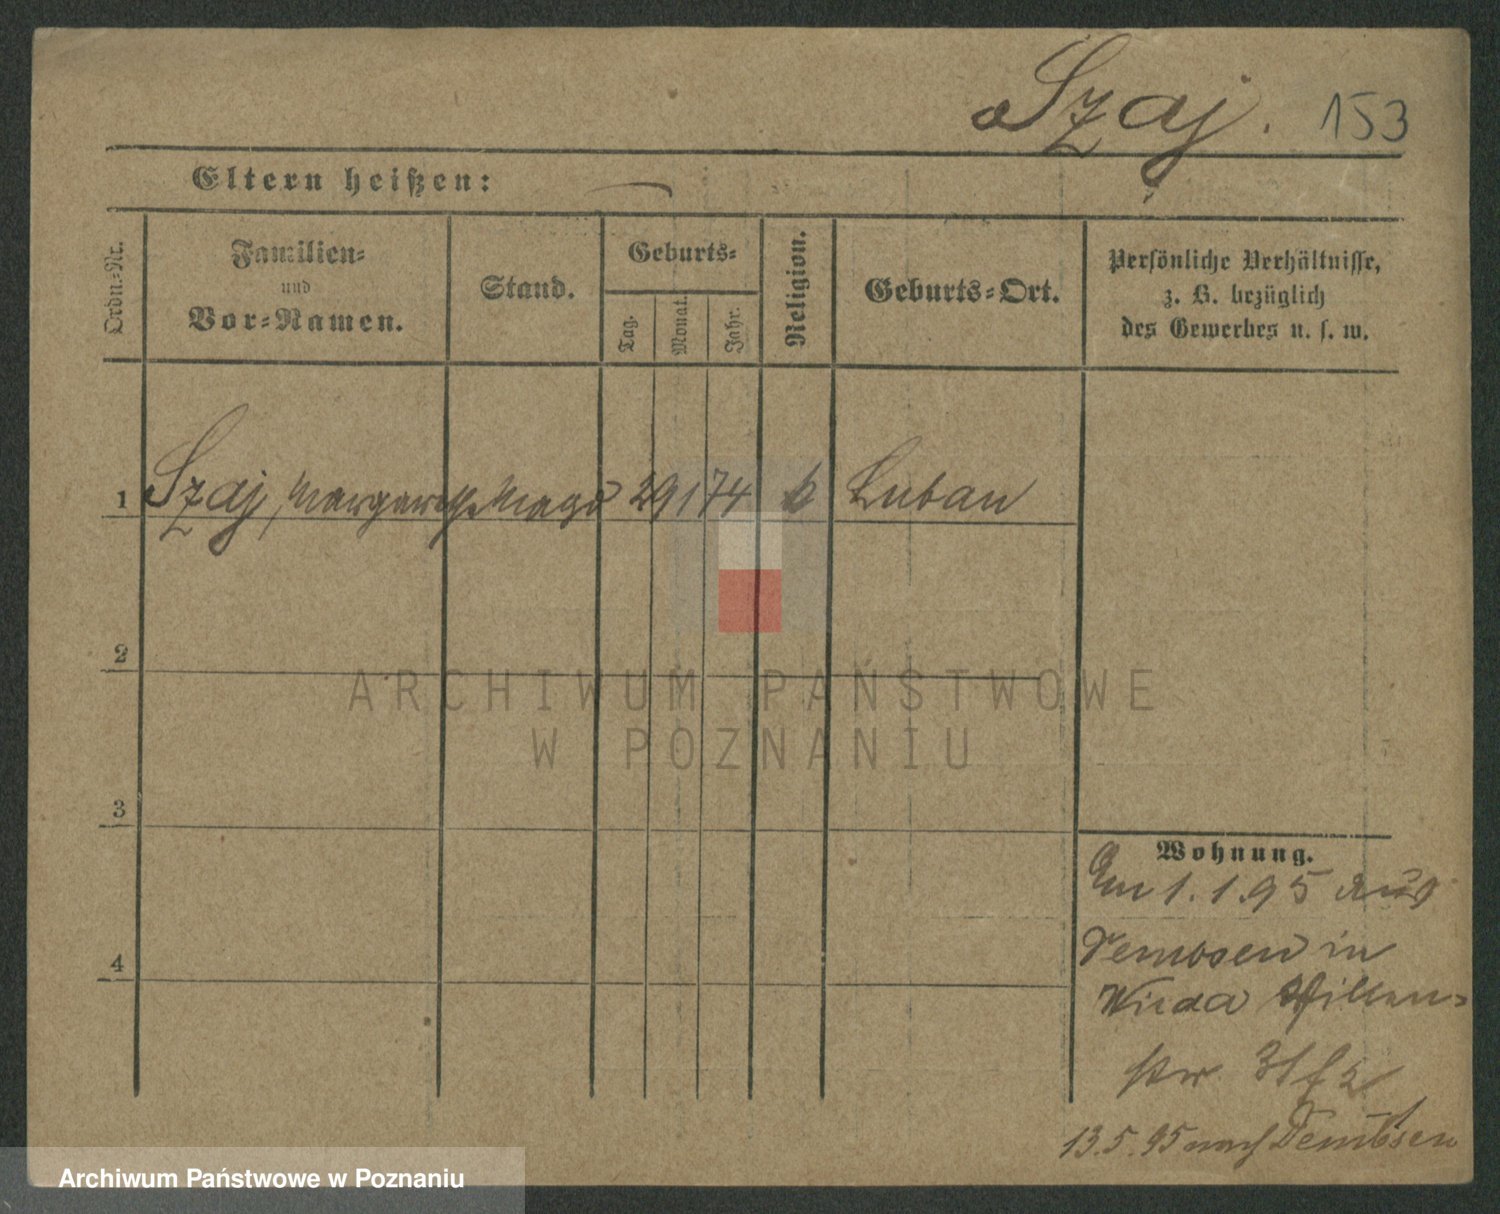 Szaj. 153
Eltern heißen:
Ordn.-Nr.
Familien-
und
Vor-Namen.
Stand.
Geburts-
Tag.
Monat.
Jahr.
Religion.
Geburts-Ort.
Persönliche Verhältnisse,
z. B. bezüglich
des Gewerbes u. s. w.
1 Szaj, Margarethe Magd 29 1 74 k Luban
2
3
4
Wohnung.
Am 1.1.95 aus
Dembsen in
Wilda
str. 31
13.5.95 nach Dembsen
ARCHIWUM PAŃSTWOWE
W POZNANIU
Archiwum Państwowe w Poznaniu